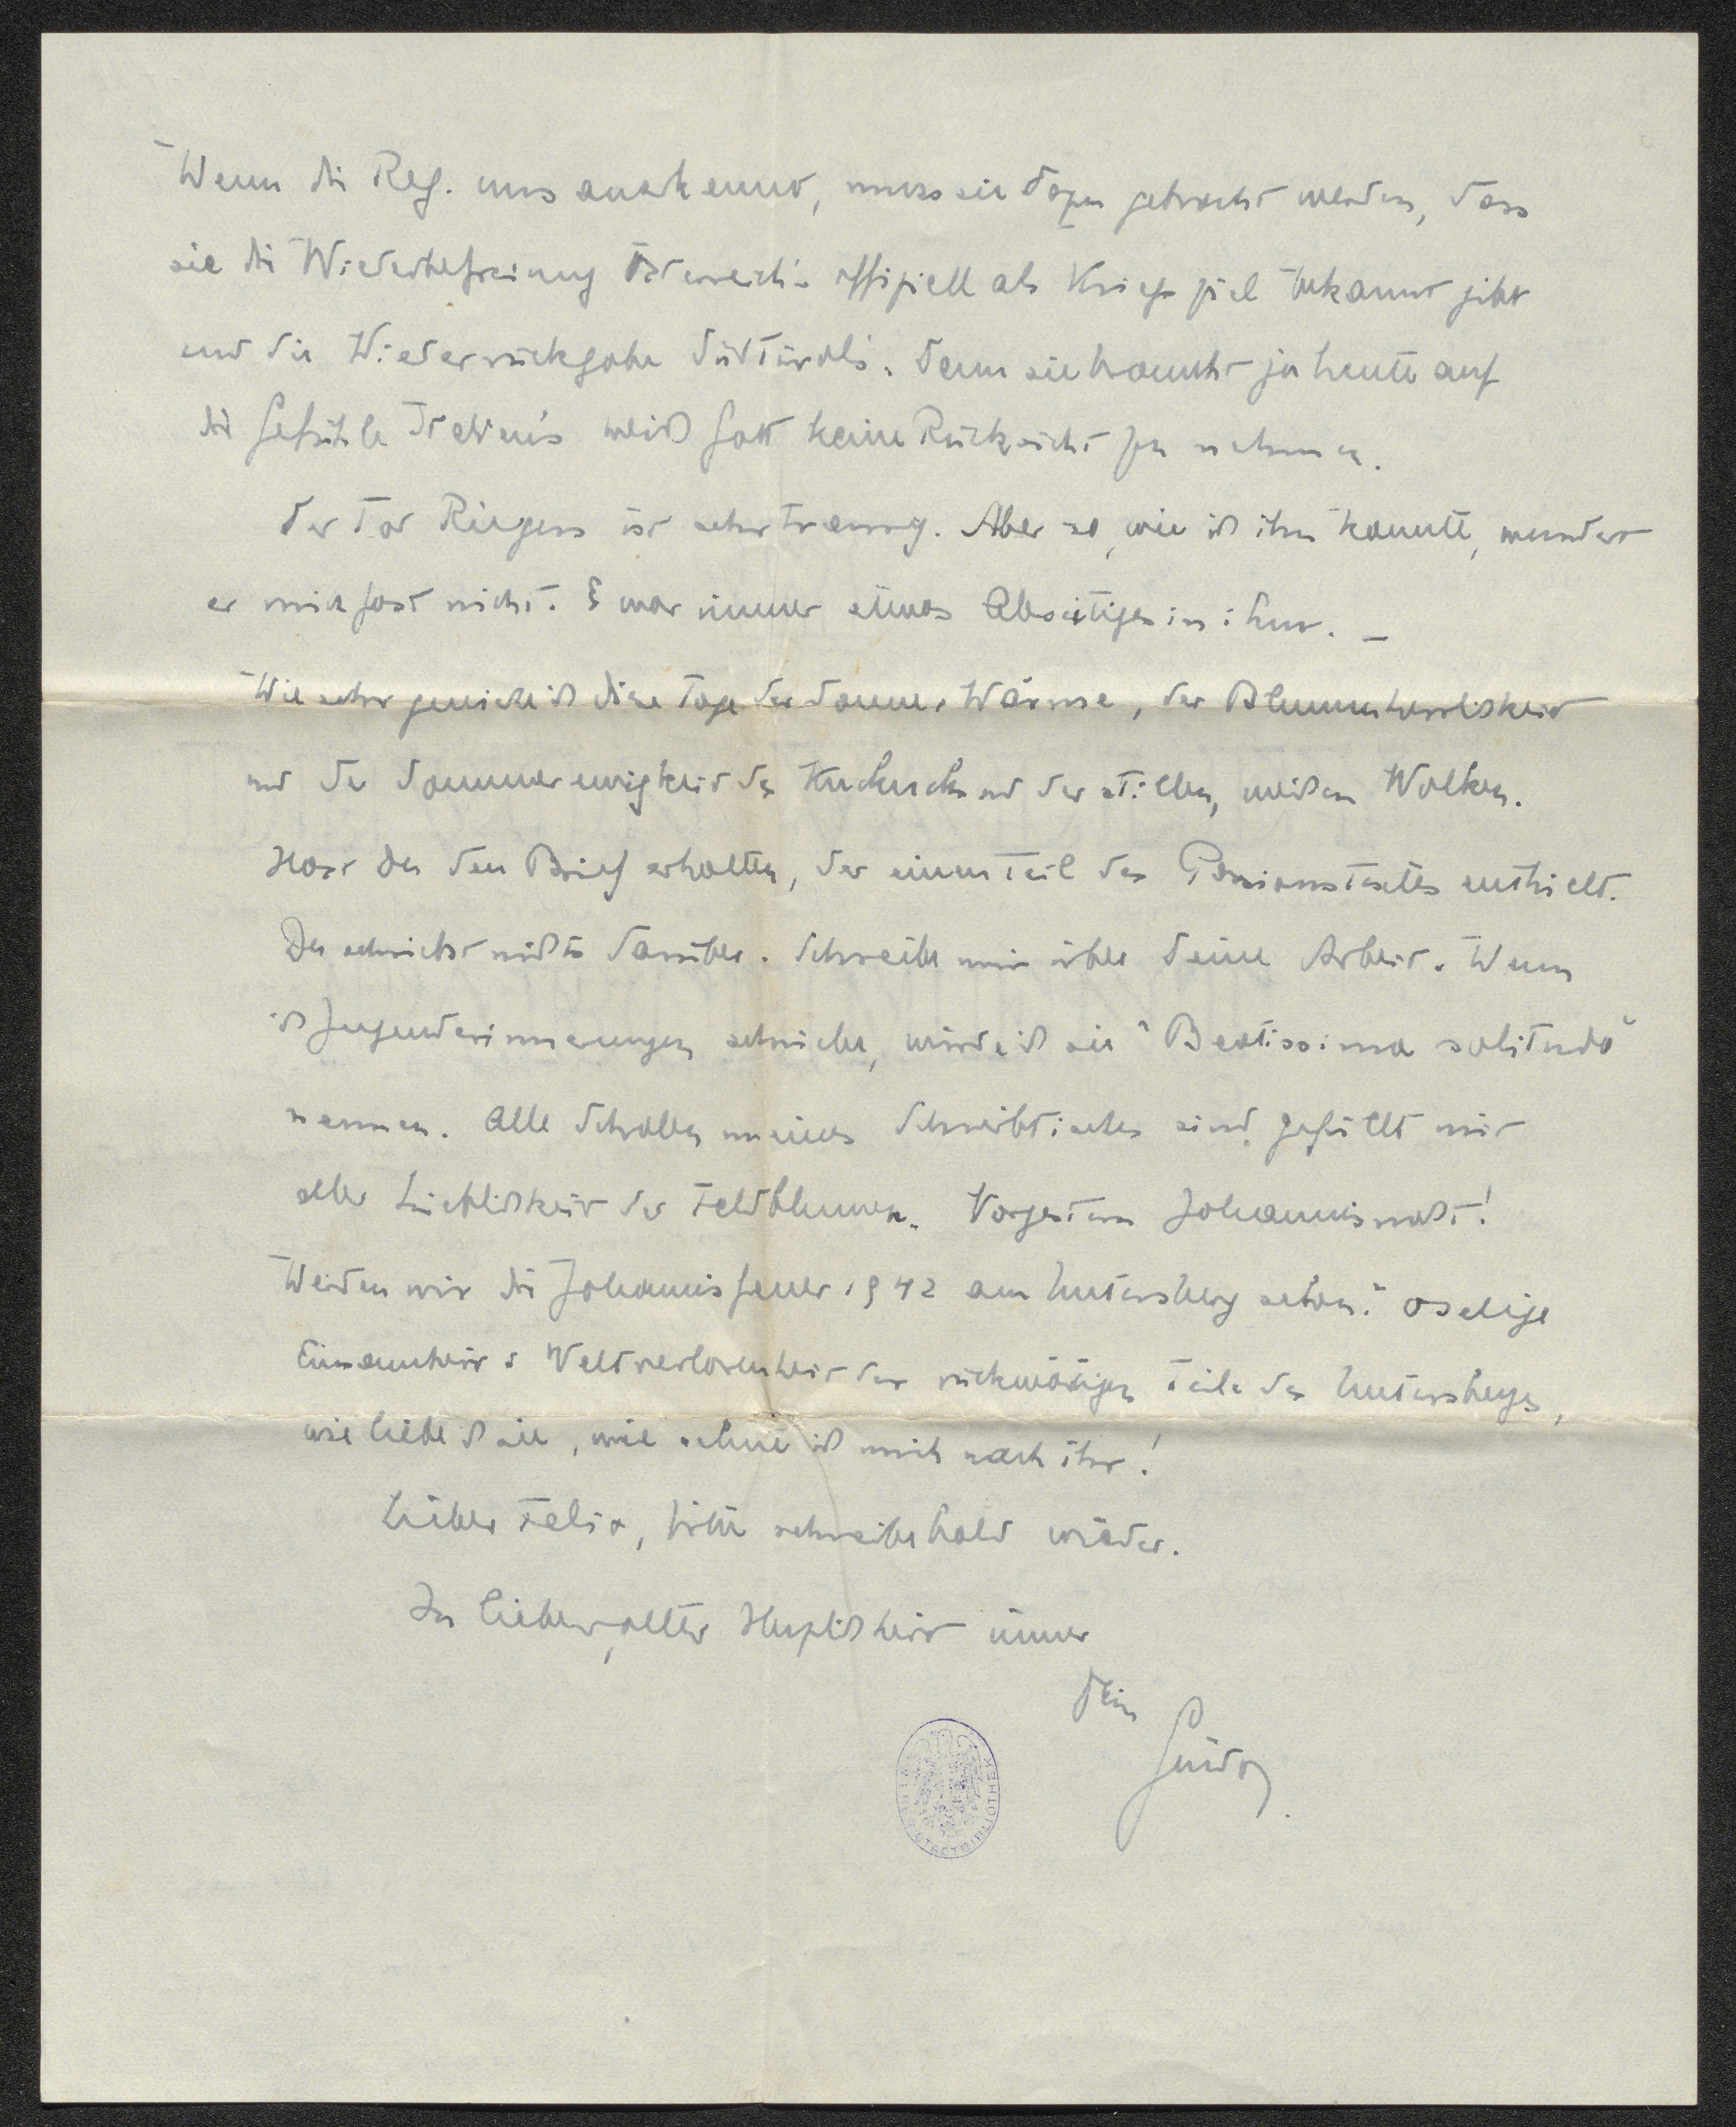 Wenn die Reg. uns anerkennt, muss sie dazu gebracht werden, dass
sie die Wiederbefreiung Österreich's offiziell als Kriegsziel bekannt gibt
und die Wiederrückgabe Südtirols. Denn sie braucht ja heute auf
die Gefühle Italien's weiß Gott keine Rücksicht zu nehmen.
Der Tod Riegers ist sehr traurig. Aber so, wie ich ihn kannte, wundert
er mich fast nicht. Es war immer etwas Abseitiges in ihm. –
Wie sehr genieße ich diese Tage der Sommer Wärme, der Blumenherrlichkeit
und der Sommerewigkeit des Kuckucks und der stillen, weißen Wolken.
Hast du den Brief erhalten, der einen Teil des Passionstextes enthielt.
Du schriebst nichts darüber. Schreibe mir über Deine Arbeit. Wenn
ich Jugenderinnerungen schriebe, würde ich sie "Beatissima solitudo"
nennen. Alle Schalen meines Schreibtisches sind gefüllt mit
aller Lieblichkeit der Feldblumen. Vorgestern Johannisnacht!
Werden wir die Johannisfeuer 1942 am Untersberg sehen? O selige
Einsamkeit & Weltverlorenheit der rückwärtigen Teile des Untersberges,
wie liebe ich sie, wie sehne ich mich nach ihr!
Lieber Felix, bitte schreibe bald wieder.
In lieber, alter Herzlichkeit immer
Dein
Guido.
WIENER STADTBIBLIOTHEK